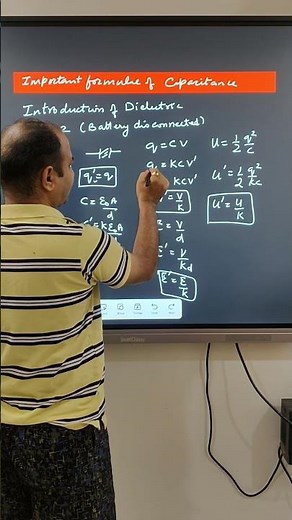 Important formulae of Capacitance
Introduction of Dielectric
2 (Battery disconnected)
q'=q
C = ε₀A/d
'= Kε₀A/d
q = CV
q = KCV'
KCV'
'= V/K
= V/d
' = V/Kd
E' = E/K
U = 1/2 q²/C
U' = 1/2 q²/KC
U' = U/K